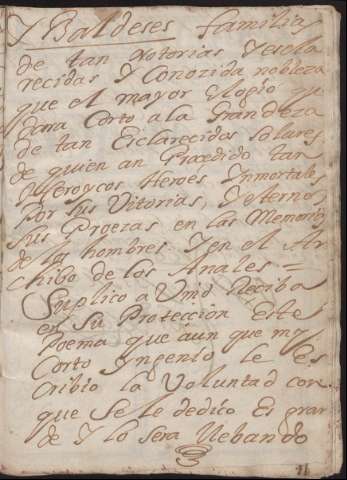 Y Baldeses familias
de tan Notorias Y escla
recidas Y Conozida nobleza
que el mayor Elogio que
dara Corto a la Grandeza
de tan Esclarecidos Solares
de quien an Procedido tan
Heroycos Heroes, Inmortales
Por sus Vitorias, Y eternos
sus Proezas en las Memorias
de los hombres Y en el Ar
chibo de los Anales =
Suplico a Vmd Reciba
en Su Protección Este
Poema que aun que my
Corto Ingenio le Es
Cribio la Voluntad con
que Se le dedico Es gran
de Y lo sera llebando